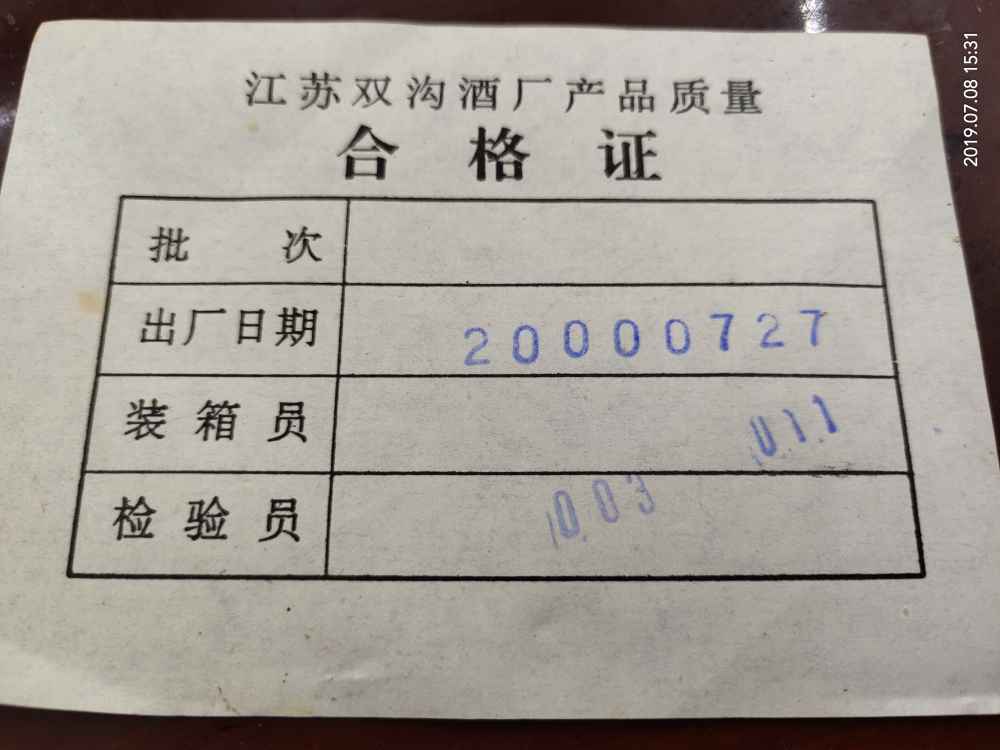 江苏双沟酒厂产品质量
合格证
批次
出厂日期 20000727
装箱员 011
检验员 003
2019.07.08 15:31